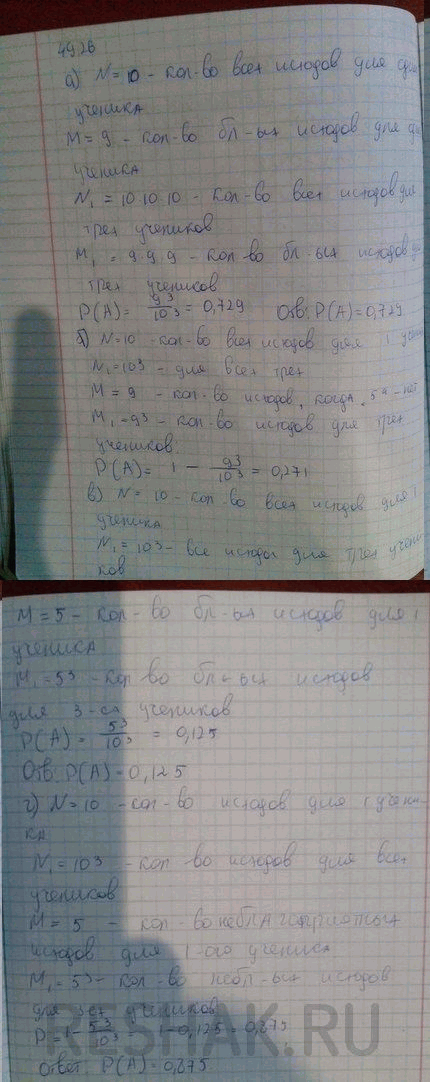 49.26
а) N = 10 - кол-во всех исходов для
ученика
M = 9 - кол-во бл-ых исходов для
ученика
N₁ = 10·10·10 - кол-во всех исходов для
трех учеников
M₁ = 9·9·9 - кол-во бл-ых исходов
трех учеников
P(A) = 9³/10³ = 0,729 Отв: P(A) = 0,729
б) N=10 - кол-во всех исходов для 1
N₁=10³ - для всех трех
M = 9 - кол-во исходов, когда "5" - нет
M₁=9³ - кол-во исходов для трех
учеников:
P(A) = 1 - 9³/10³ = 0,271
в) N = 10 - кол-во всех исходов для 1
ученика
N₁ = 10³ - все исходы для трех учени-
ков
M = 5 - кол-во бл-ых исходов для 1
ученика
M₁ = 5³ - кол-во бл-ых исходов
для 3-ех учеников
P(A) = 5³/10³ = 0,125
Отв: P(A) = 0,125
г) N = 10 - кол-во исходов для 1 учени-
ка
N₁ = 10³ - кол-во исходов для всех
учеников
M = 5 - кол-во неблагоприятных
исходов для 1-ого ученика
M₁ = 5³ - кол-во небл-ых исходов
для 3ех учеников
P = 1 - 5³/10³ = 1 - 0,125 = 0,875
Ответ: P(A) = 0,875
RESHAK.RU